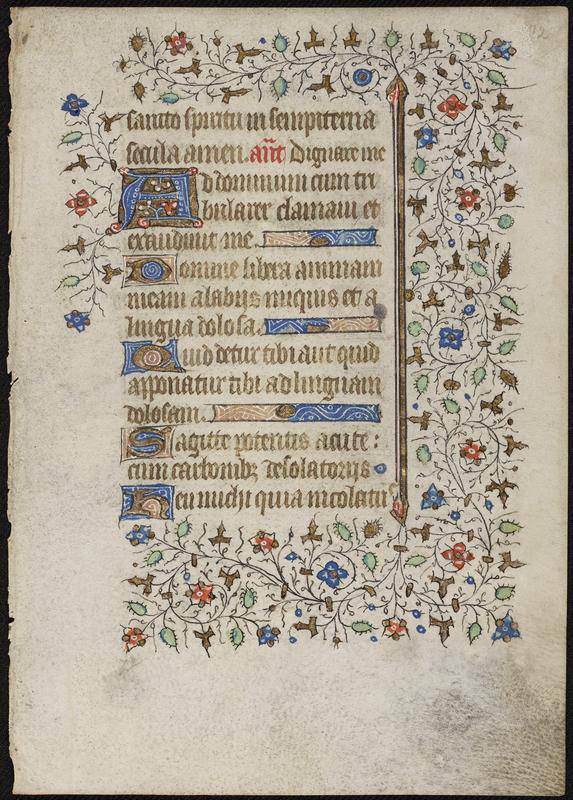 sancto spiritu in sempiterna
secula amen. ant̃ Dignare me
Ad dominum cum tri
bularer clamaui et
exaudiuit me.
Domine libera animam
meam a labijs iniquis et a
lingua dolosa.
Quid detur tibi aut quid
apponatur tibi ad linguam
dolosam.
Sagitte potentis acute :
cum carbonibꝫ desolatorijs
Heu michi quia incolatꝰ